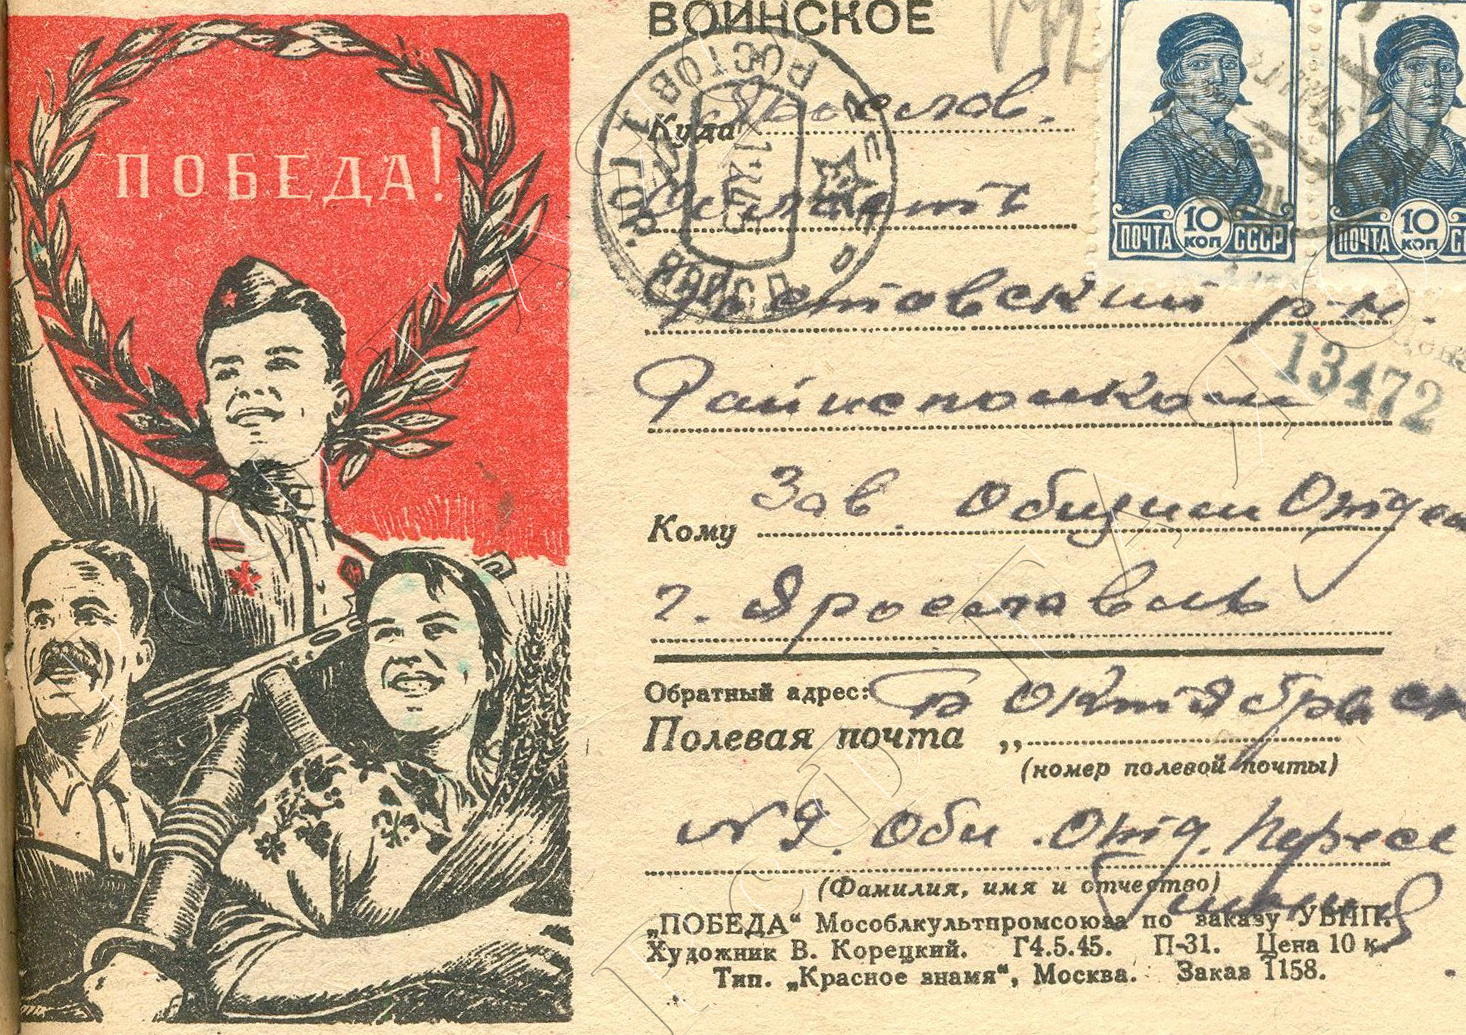 ПОБЕДА!
ВОИНСКОЕ
Куда Ярослов.
область
Ростовский р-н.
Райисполком
13472
Кому Зав. Общим Отдел
г. Ярославль
Обратный адрес:
Полевая почта „
(номер полевой почты)
№ 9. Общ. Отд. Пересе
(Фамилия, имя и отчество)
„ПОБЕДА“ Мособлкультпромсоюза по заказу УВПП.
Художник В. Корецкий. Г4.5.45. П-31. Цена 10 к.
Тип. „Красное знамя“, Москва. Заказ 1158.
10 КОП
ПОЧТА СССР
10 КОП
ПОЧТА
РОСТОВ